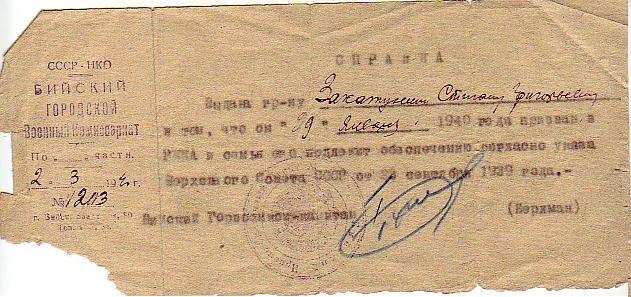 СССР - НКО
БИЙСКИЙ
ГОРОДСКОЙ
Военный Комиссариат
По частн.
2 - 3
№ 1203
СПРАВКА
Выдана гр-ну Закатунину Степану Григорьевичу
в том, что он "29" Января 1940 года призван в
РККА и семья его подлежит обеспечению согласно указа
Верховного Совета СССР от 26 сентября 1939 года.-
Бийский Горвоенком-капитан (Беркман)